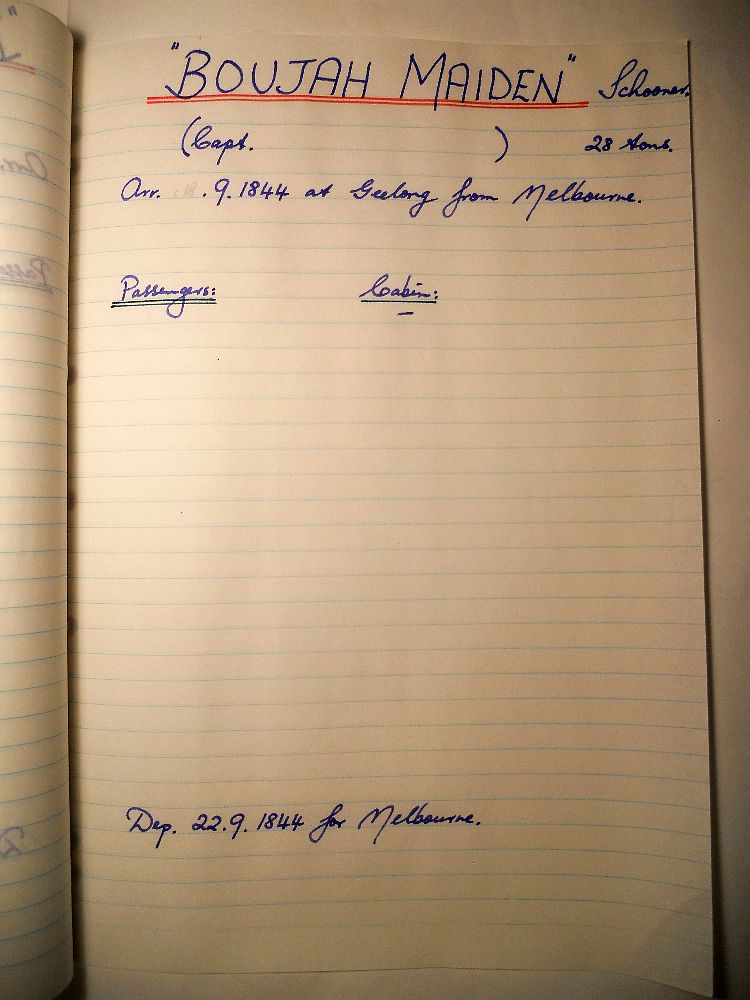 "BOUJAH MAIDEN" Schooner.
(Capt. ) 28 tons.
Arr. .9.1844 at Geelong from Melbourne.
Passengers: Cabin:
–
Dep. 22.9.1844 for Melbourne.